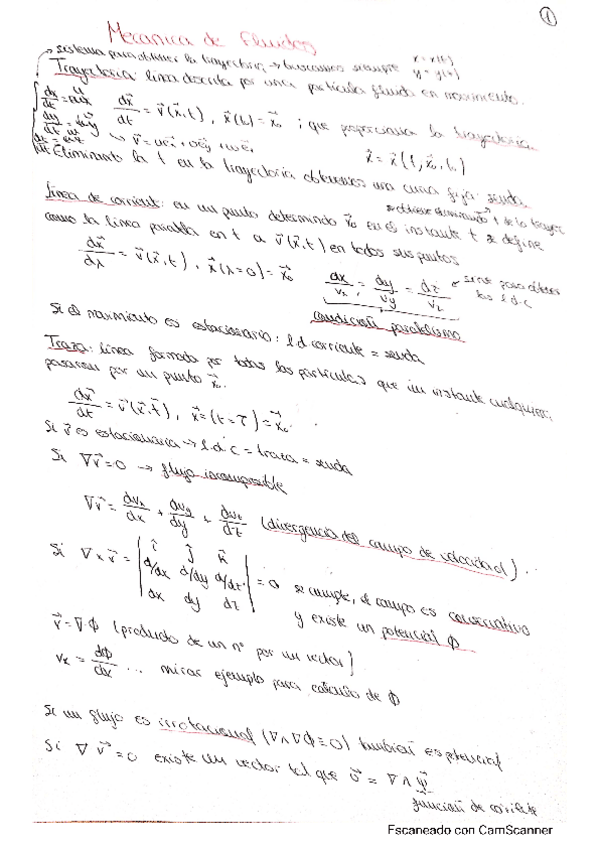 1
Mecanica de Fluidos
→ sistema para obtener la trayectoria → buscamos siempre x = x(t)
y = y(t)
Trayectoria: línea descrita por una partícula fluida en movimiento.
dx/dt = u
dy/dt = v
dz/dt = w
dx⃗/dt = v⃗(x⃗,t), x⃗(t₀) = x⃗₀; que proporciona la trayectoria.
↳ v⃗ = ue⃗ₓ + ve⃗ᵧ + we⃗ x⃗ = x⃗(t, x⃗₀, t₀)
Eliminando la t en la trayectoria obtenemos una curva fija: senda
se obtiene eliminando t de la trayec
Línea de corriente: en un punto determinado x⃗₀ en el instante t se define
como la línea paralela en t a v⃗(x⃗,t) en todos sus puntos
dx⃗/dλ = v⃗(x⃗,t), x⃗(λ=0) = x⃗₀ dx/vₓ = dy/vᵧ = dz/v_z sirve para obtener
las l.d.c
condición paralelismo
Si el movimiento es estacionario: l.d.corriente = senda
Traza: línea formada por todas las partículas que en instante cualquier;
pasaron por un punto x⃗₀.
dx⃗/dt = v⃗(x⃗,t), x⃗=(t=τ)=x⃗₀
Si v⃗ es estacionaria → l.d.c = traza = senda
Si ∇v⃗=0 → flujo incompresible
∇v⃗ = dvₓ/dx + dvᵧ/dy + dv_z/dz (divergencia del campo de velocidad).
Si ∇×v⃗ = | i⃗ j⃗ k⃗ |
| d/dx d/dy d/dz | = 0 se cumple, el campo es conservativo
| dx dy dz | y existe un potencial Φ
v⃗ = ∇·Φ (producto de un nº por un vector)
vₓ = dΦ/dx ... mirar ejemplo para calculo de Φ
Si un flujo es irrotacional (∇∧∇Φ=0) también es potencial
Si ∇v⃗=0 existe un vector tal que v⃗ = ∇∧ψ⃗
función de corriente
Escaneado con CamScanner